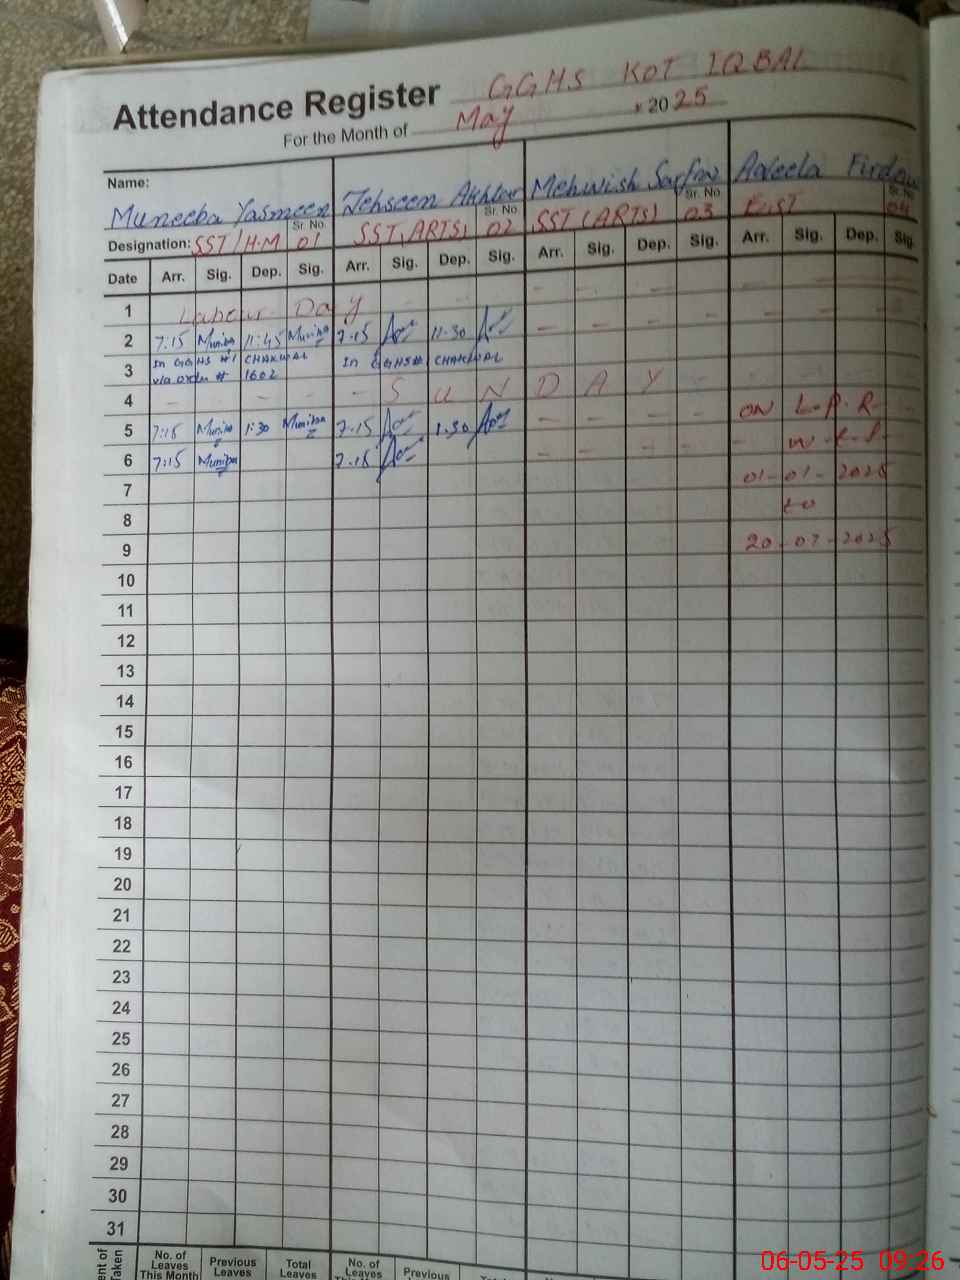 Attendance Register GGHS KOT IQBAL
For the Month of May 2025
Name: Muneeba Yasmeen Tehseen Akhtar Mehwish Sarfraz Firdous
Sr. No. Sr. No. Sr. No. Sr. No.
Designation: SST/H.M 01 SST(ARTS) 02 SST(ARTS) 03 EST 04
Date Arr. Sig. Dep. Sig. Arr. Sig. Dep. Sig. Arr. Sig. Dep. Sig. Arr. Sig. Dep. Sig.
1 Labour Day
2 7:15 Muniba 11:45 Muniba 7.15 11.30
3 In GGHS #1 CHAKWAL In GGHS#1 CHAKWAL
via order # 1602
4 SUNDAY
5 7:15 Muniba 1:30 Muniba 7.15 1.30 ON L.P.R
6 7:15 Muniba 7.15 w.e.f.
7 01-01-2025
8 to
9 20-07-2025
10
11
12
13
14
15
16
17
18
19
20
21
22
23
24
25
26
27
28
29
30
31
No. of Leaves This Month Previous Leaves Total Leaves No. of Leaves Previous Leaves
06-05-25 09:26